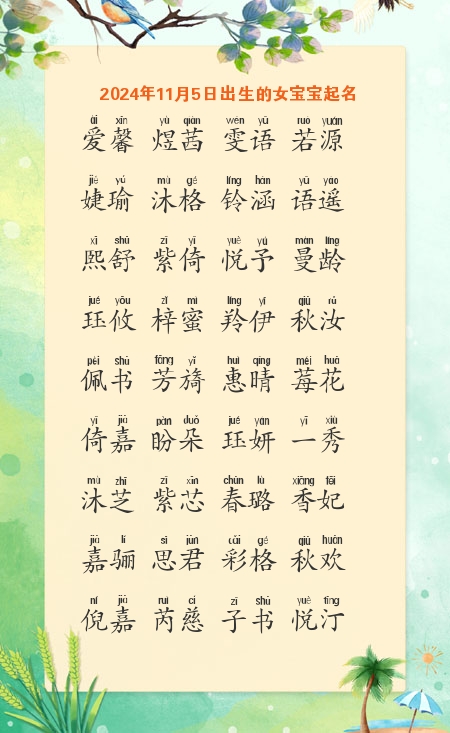 2024年11月5日出生的女宝宝起名
ài xīn yù qiàn wén yǔ ruò yuán
爱馨 煜茜 雯语 若源
jié yú mù gé líng hán yǔ yáo
婕瑜 沐格 铃涵 语遥
xī shū zǐ yǐ yuè yú màn líng
熙舒 紫倚 悦予 曼龄
jué yōu zǐ mì líng yī qiū rǔ
珏攸 梓蜜 羚伊 秋汝
pèi shū fāng yǐ huì qíng méi huā
佩书 芳旖 惠晴 莓花
yǐ jiā pàn duǒ jué yán yī xiù
倚嘉 盼朵 珏妍 一秀
mù zhī zǐ xīn chūn lù xiāng fēi
沐芝 紫芯 春璐 香妃
jiā lí sī jūn cǎi gé qiū huān
嘉骊 思君 彩格 秋欢
ní jiā ruì cí zǐ shū yuè tīng
倪嘉 芮慈 子书 悦汀